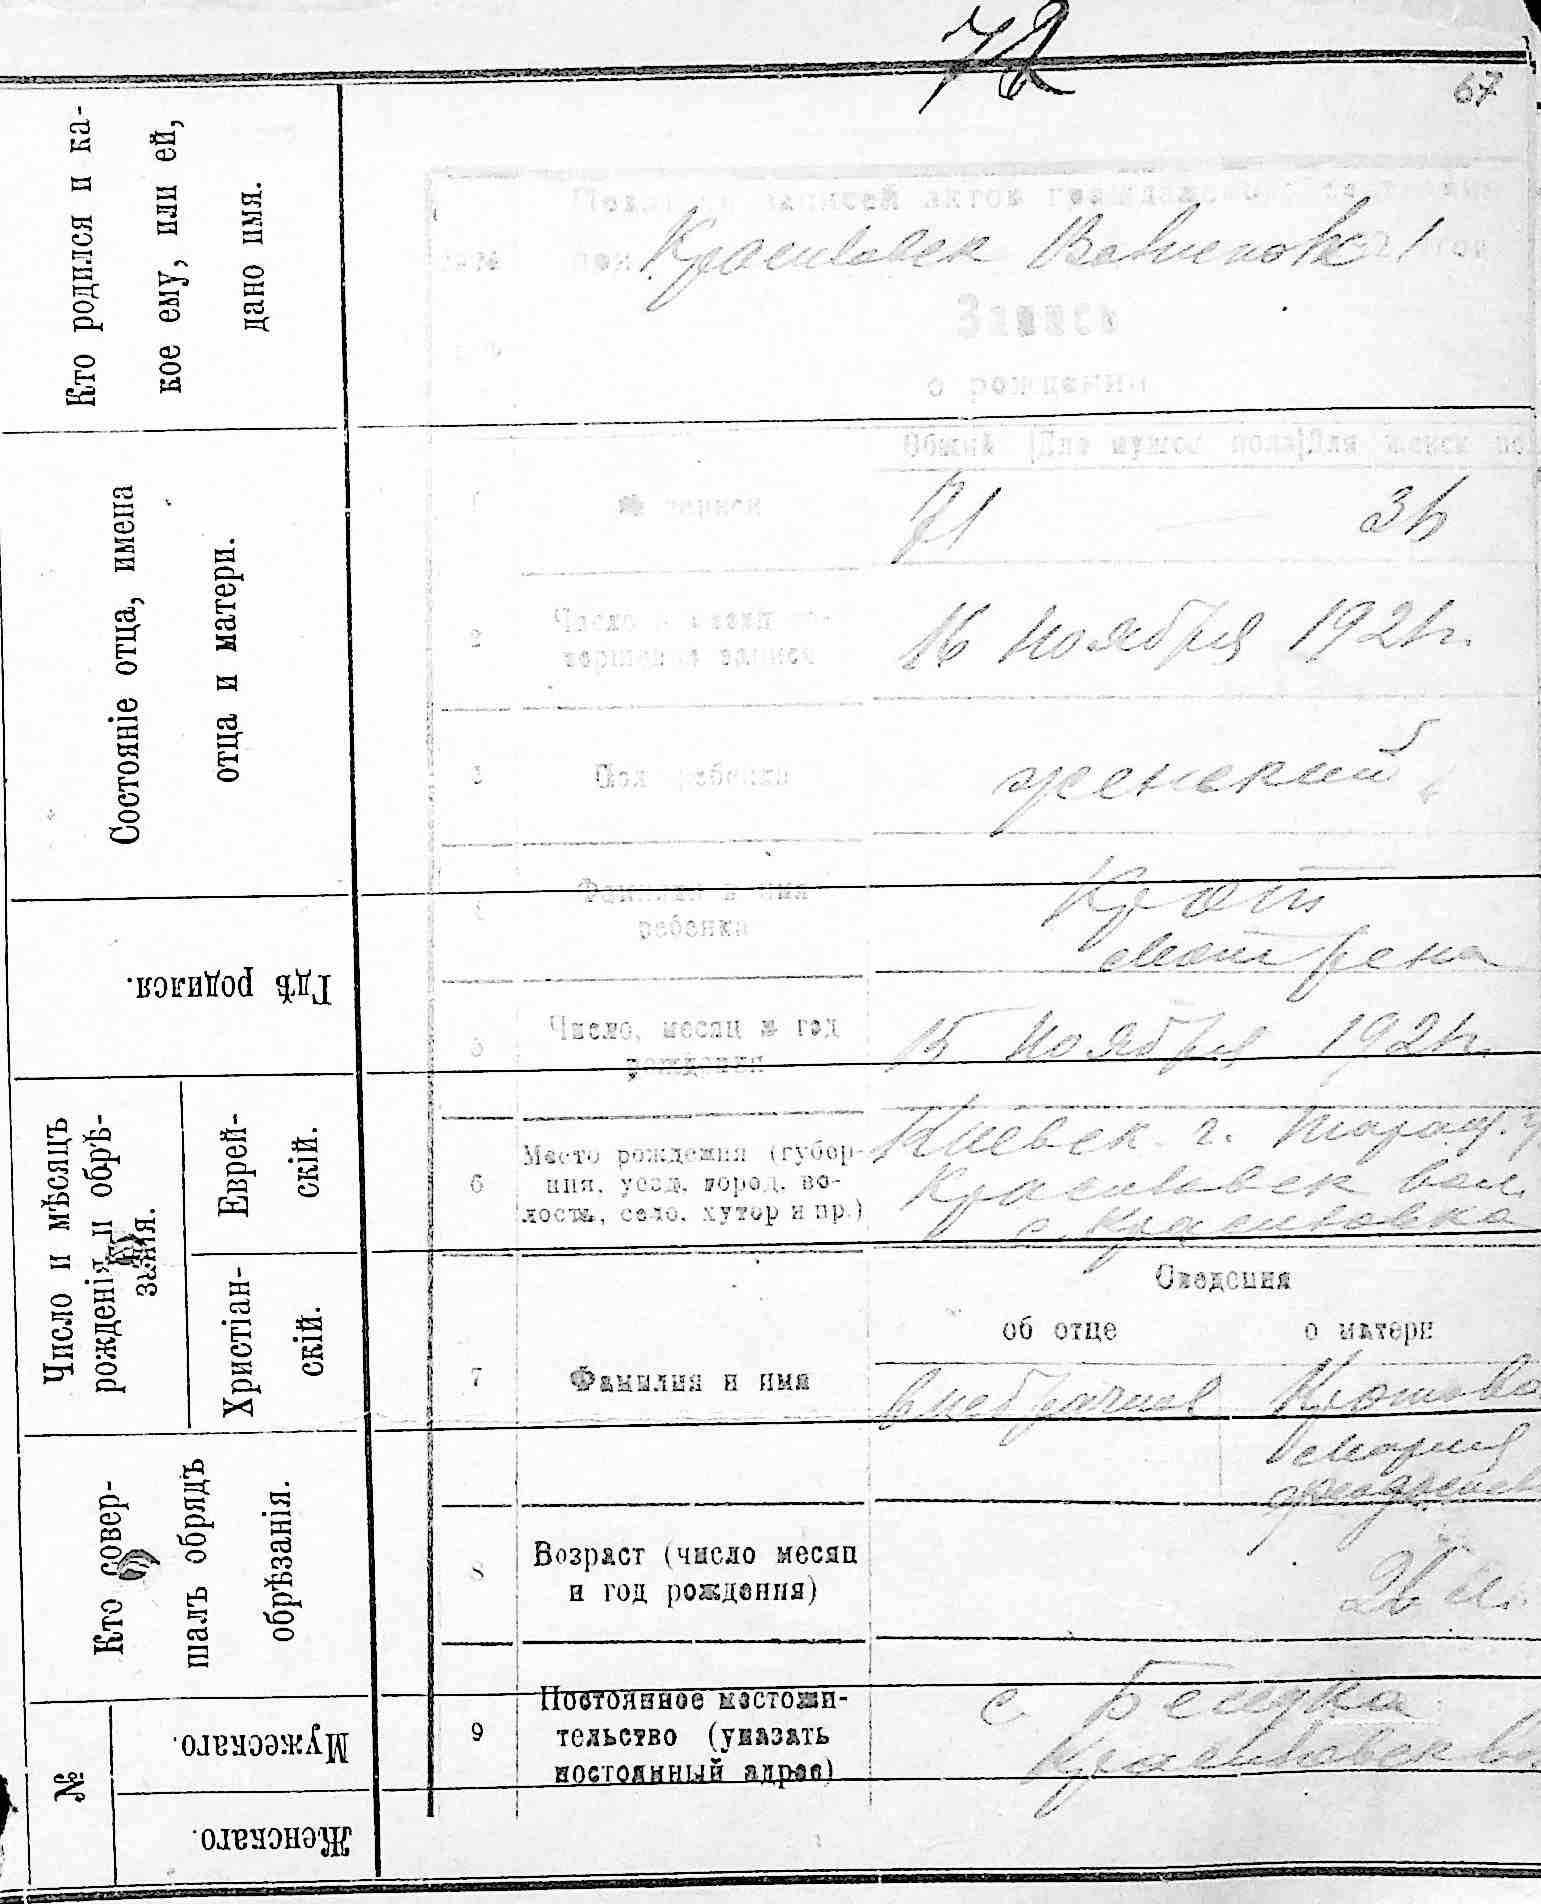 72
67
Кто родился и ка-
кое ему, или ей,
дано имя.
Состояніе отца, имена
отца и матери.
Гдѣ родился.
Число и мѣсяцъ
рожденія и обрѣ-
занія.
Еврей-
скій.
Христіан-
скій.
Кто совер-
шалъ обрядъ
обрѣзанія.
№
Мужескаго.
Женскаго.
записей актов гражданского
Красиловск
Запись
о рождении
Общий Для мужск пола Для женск
1 № записи 71
2 Число и месяц со-
вершения записи
16 Ноября 1921 г.
3 Пол ребенка женский
4 Фамилия и имя
ребенка
Крот
Мотрена
5 Число, месяц и год
рождения
15 Ноября 1921 г.
6 Место рождения (губер-
ния, уезд, город, во-
лость, село, хутор и пр.)
Киевск. г. Таращ. у
Красиловск вол.
с. Красиловка
Сведения
об отце о матери
7 Фамилия и имя
внебрачная Кротова
Мария
8 Возраст (число месяц
и год рождения)
26 л.
9 Постоянное местожи-
тельство (указать
постоянный адрес)
с
Красиловск во